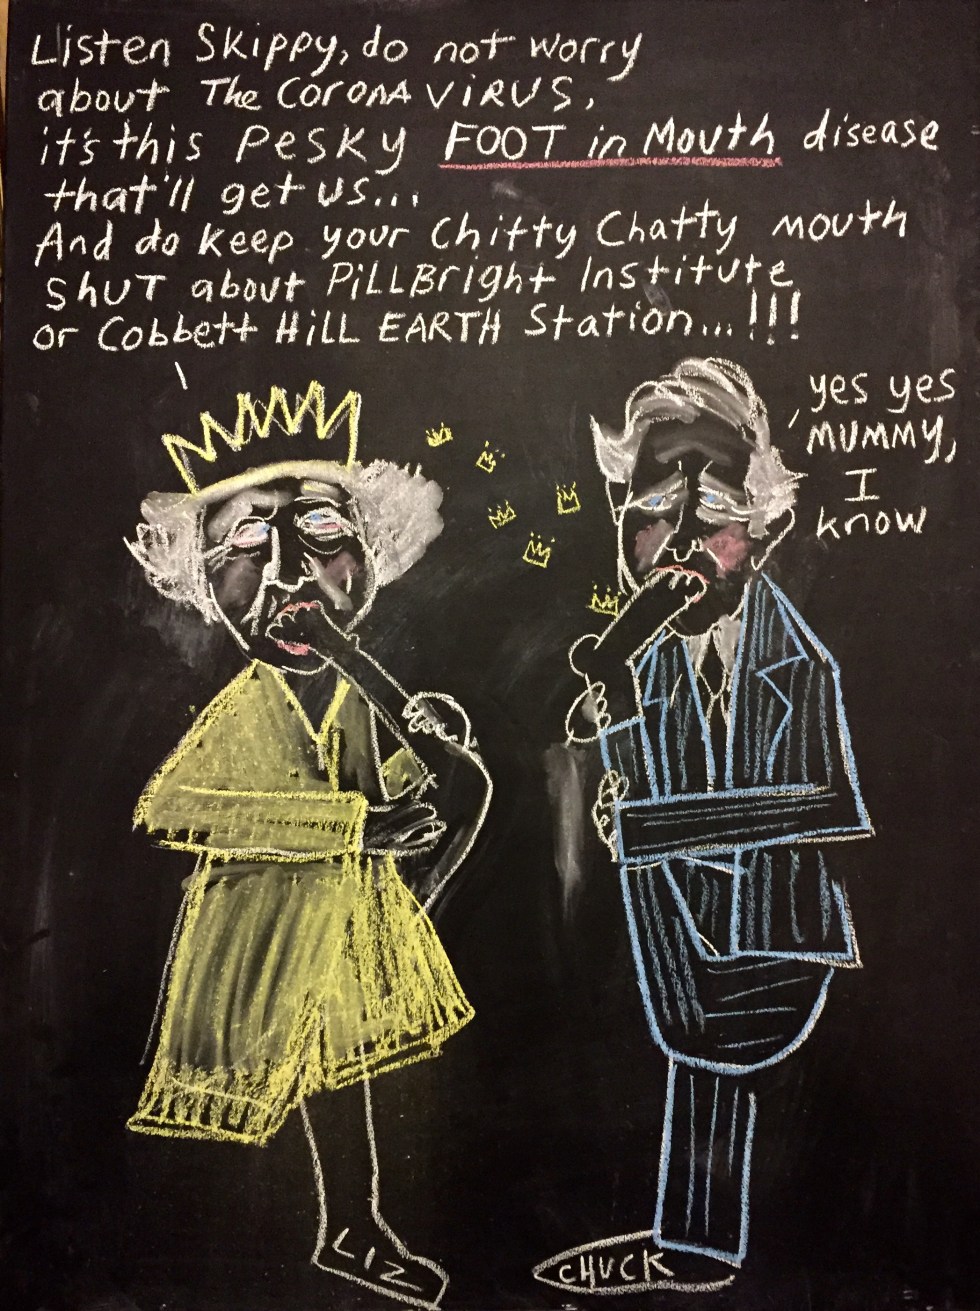 Listen Skippy, do not worry
about The CORONA VIRUS,
it's this PESKY FOOT in Mouth disease
that'll get us...
And do keep your Chitty Chatty mouth
shut about PiLLBright Institute
or Cobbett HiLL EARTH Station...!!!
yes yes
MUMMY,
I
know
LIZ
CHUCK